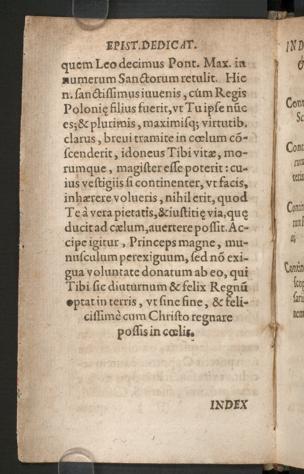 EPIST. DEDICAT.
quem Leo decimus Pont. Max. in
numerum Sanctorum retulit. Hic
n. sanctissimus iuuenis, cùm Regis
Polonię filius fuerit, vt Tu ipse nũc
es; & plurimis, maximisq; virtutib.
clarus, breui tramite in cœlum cõ-
scenderit, idoneus Tibi vitæ, mo-
rumque, magister esse poterit: cu-
ius vestigiis si continenter, vt facis,
inhærere volueris, nihil erit, quod
Te à vera pietatis, & iustitię via, quę
ducit ad cælum, auertere possit. Ac-
cipe igitur, Princeps magne, mu-
nusculum perexiguum, sed nõ exi-
gua voluntate donatum ab eo, qui
Tibi sic diuturnum & felix Regnũ
optat in terris, vt sine fine, & feli-
cissimè cum Christo regnare
possis in cœlis.
INDEX
IND
Cont
Conc
Contin
Contin